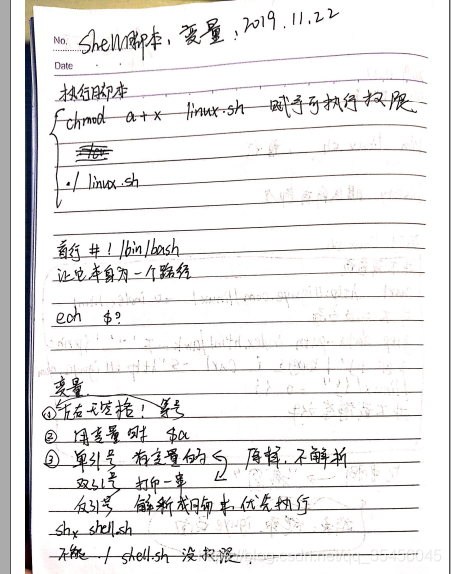 No. Shell脚本, 变量, 2019.11.22
Date
执行脚本
chmod a+x linux.sh 赋予可执行权限
./ linux.sh
首行 #! /bin/bash
让它本身为一个路径
ech $?
变量
① 左右无空格! 等号
② 用变量时 $a
③ 单引号 有变量的 原样,不解析
双引号 打印一串
反引号 解析成 优先执行
sh x shell.sh
不能 ./ shell.sh 没权限.